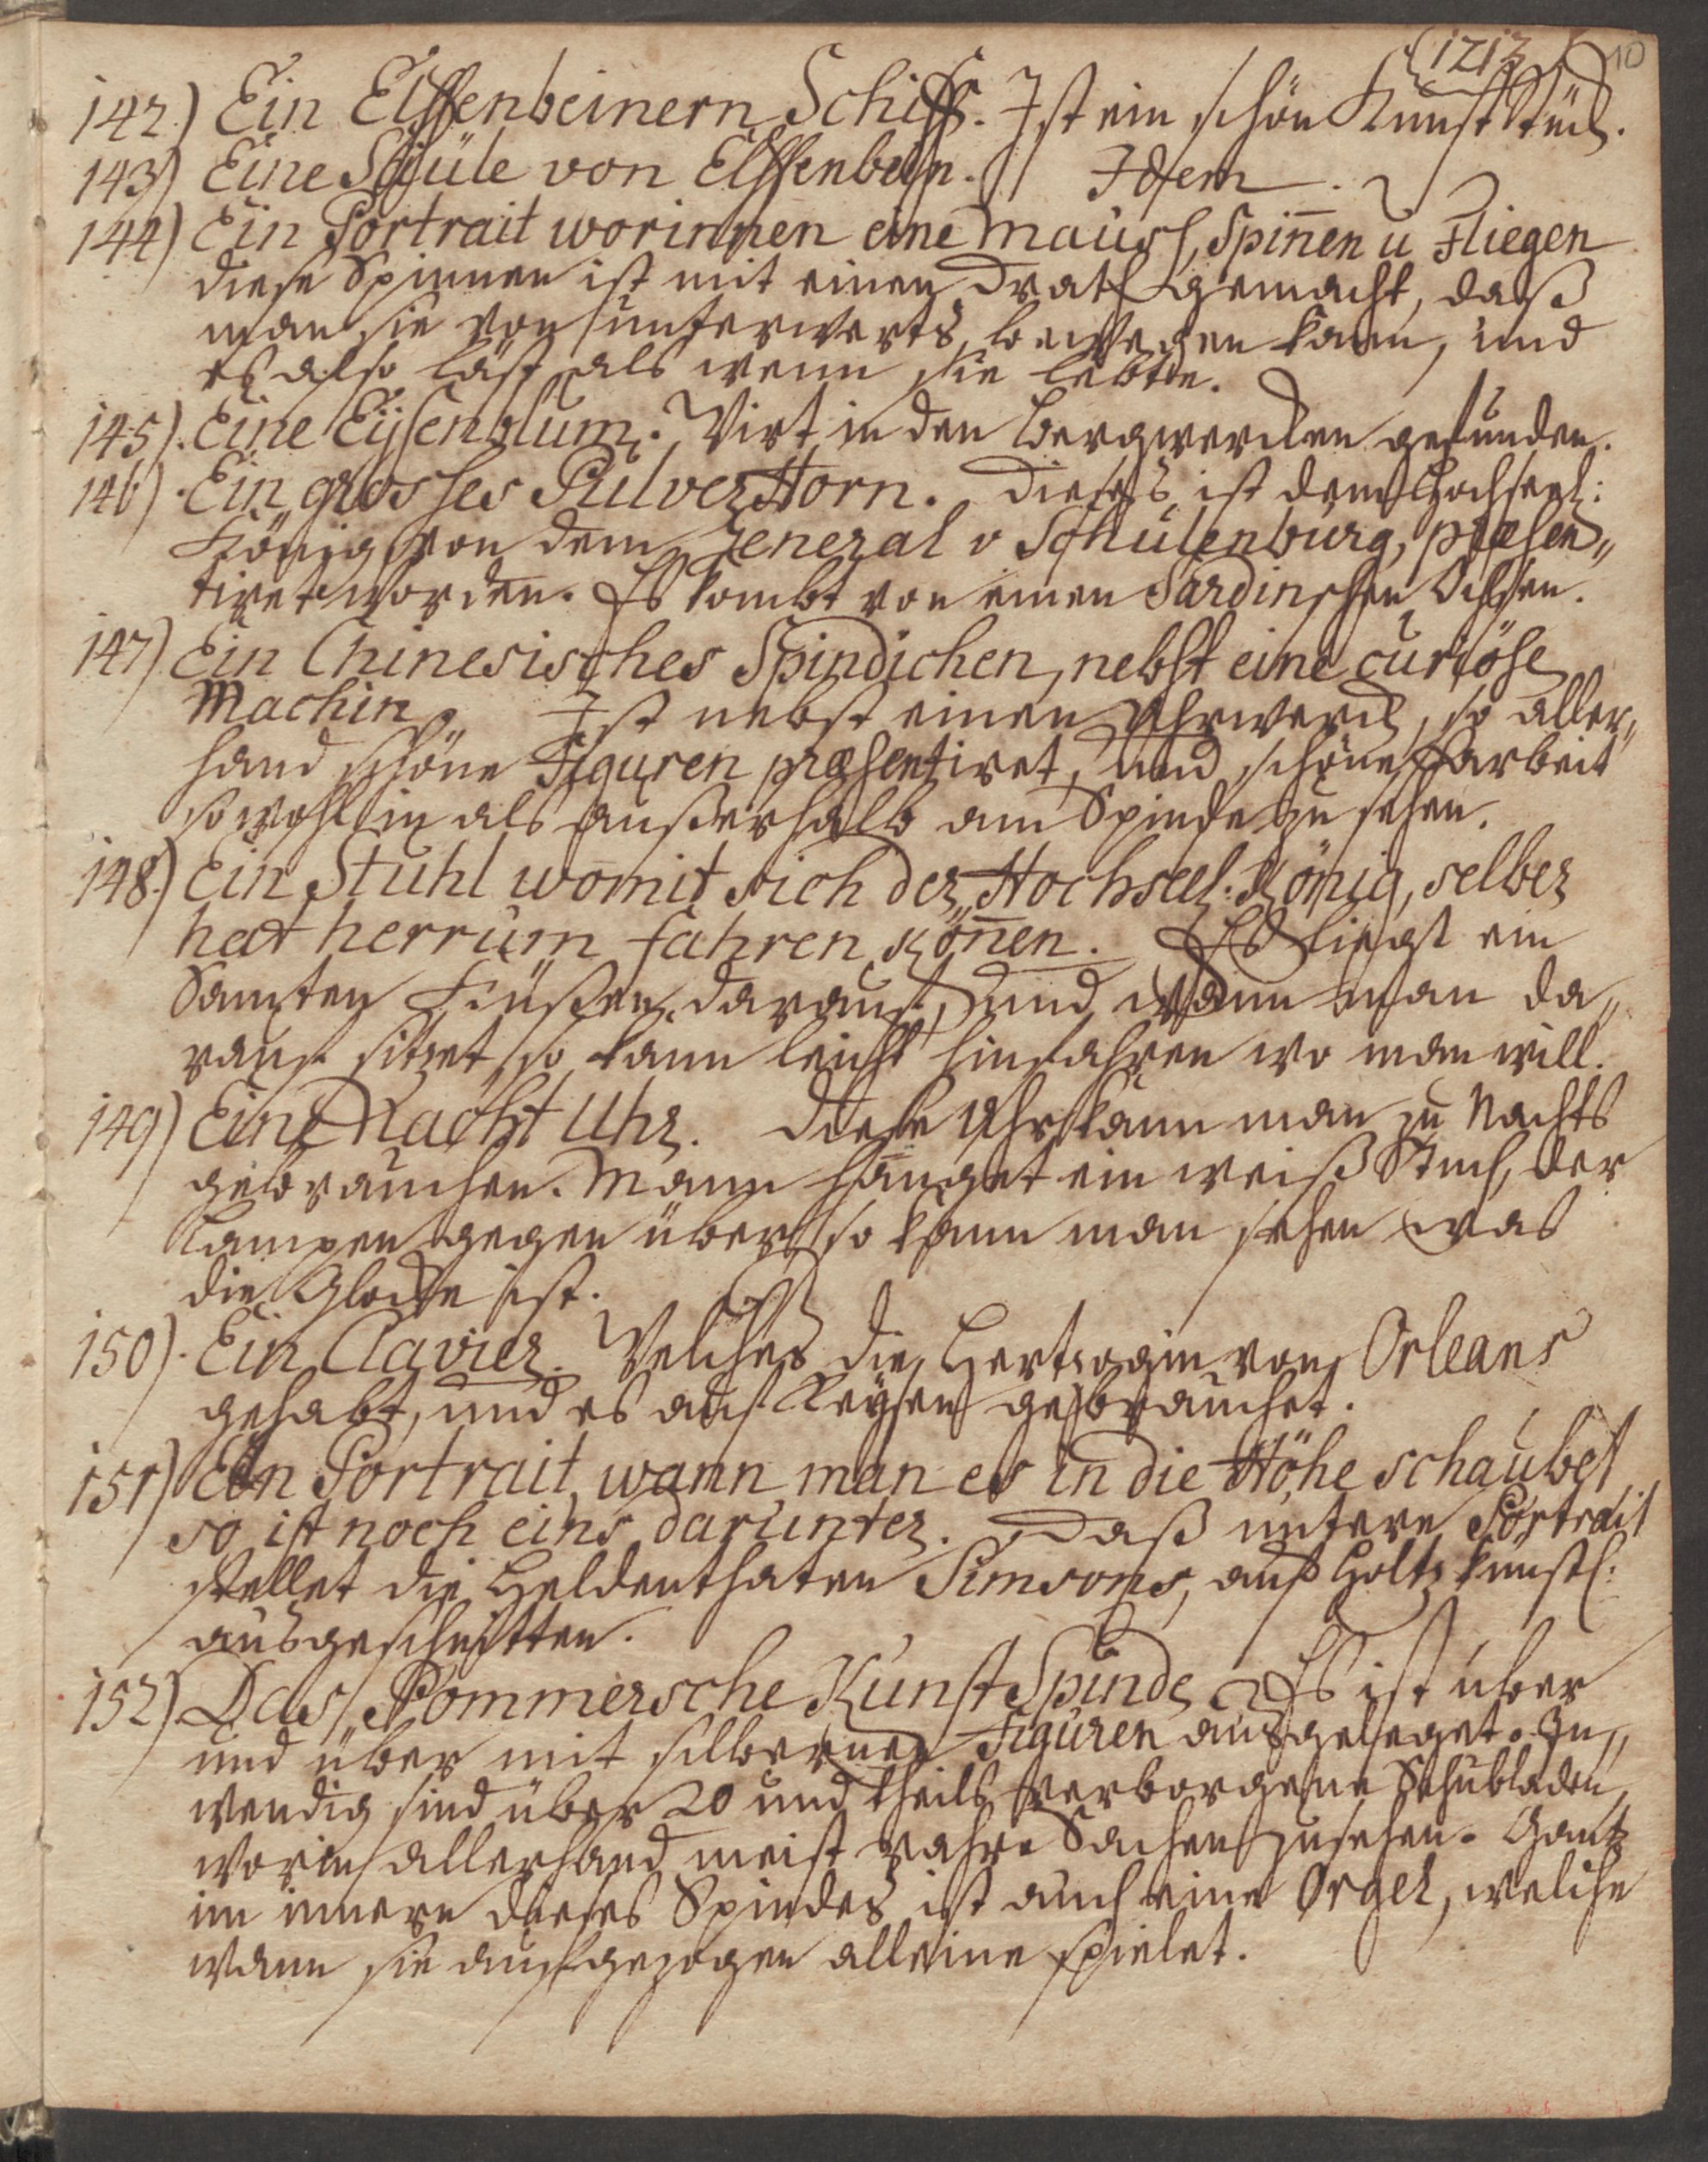 {1713 10
142.) Ein Elffenbeinern Schiff. Ist ein schön Kunst Stück.
143) Eine Säüle von Elffenbein. Idem.
144) Ein Portrait worinnen eine Mausz, Spiñen u Fliegen
diese Spinnen ist mit einen Drath gemacht, daß
man sie von unterwerts bewegen kann, und
es also läst als wenn sie lebte.
145). Eine Eysenblum. Wirt in den Bergwercken gefunden.
146). Ein grosses PulverHorn. Dieses ist dem Hochseel:
König von dem General v Schulenburg, præsen„
tiret worden. Es kombt von einen Sardinschen Ochsen.
147) Ein Chinesisches Spindichen, nebst eine curiöse
Machin. Ist nebst einen Uhrwerck, so aller„
hand schöne Figuren præsentiret, und schöne Arbeit
sowohl in als außerhalb am Spinde zu sehen.
148.) Ein Stuhl womit sich der Hochseel: König, selber
hat herrum fahren köñen. Es liegt ein
Samten Küßen darauf, und wann man da„
rauf sitzet, so kann leicht hinfahren wo man will.
149) Eine Nacht Uhr. Diese Uhr kann man zu Nachts
gebrauchen. Mann hänget ein weiß Tuch, der
Lampen gegen über, so kann man sehen was
die Glocke ist.
150). Ein Clavier. Welches die Hertzogin von Orleans
gehabt, und es auf Reysen gebrauchet.
151) Ein Portrait, wann man es in die Höhe schaubet
so ist noch eins darunter. Daß untere Portrait
stellet die Heldenthaten Simsons, auß Holtz künstl:
ausgeschnitten.
152) Das Pommersche Kunst Spinde. Es ist über
und über mit silbernen Figuren ausgeleget. In„
wendig sind über 20 und theils verborgene Schubladen,
worin allerhand meist rahre Sachen zu sehen. Gantz
im innern dieses Spindes ist auch eine Orgel, welche
wann sie aufgezogen alleine spielet.